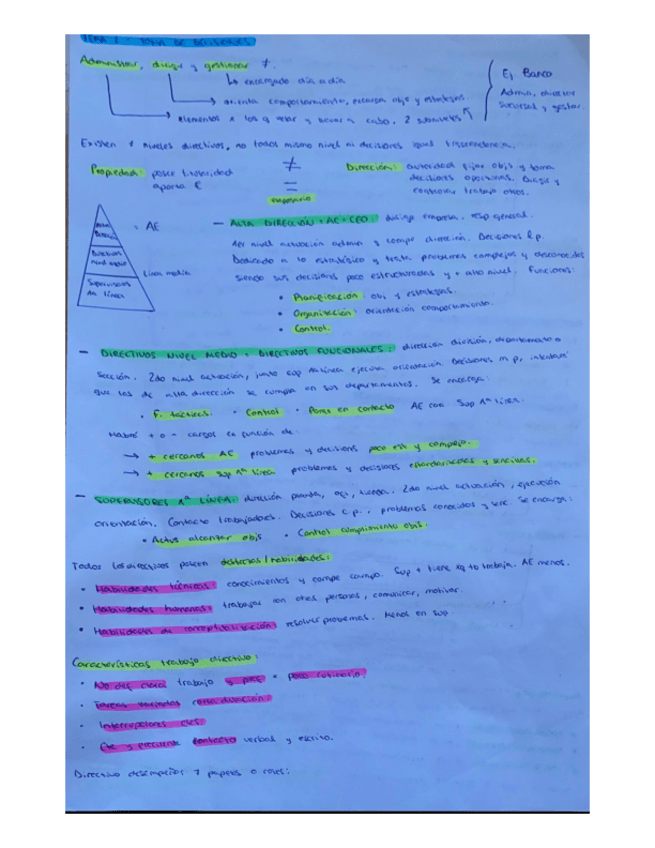 TEMA 2 - TOMA DE DECISIONES
Administrar, dirigir y gestionar ≠.
↳ encargado día a día
→ orienta comportamiento, encarga objs y estrategias.
→ elementos x los q velar y llevar a cabo. 2 subniveles
Ej. Banco
Admin, director
sucursal y gestor.
Existen ≠ niveles directivos, no todos mismo nivel ni decisiones igual trascendencia.
Propiedad: poseer titularidad
aporta €
≠
=
Dirección: autoridad fijar objs y toma
decisiones oportunas. Dirigir y
controlar trabajo otros.
Alta
Dirección
= AE
Directivos
nivel medio
Línea media
Supervisores
1ra línea
- ALTA DIRECCIÓN = AE = CEO: dirige empresa, resp general.
1er nivel actuación admin y compe dirección. Decisiones l.p.
Dedicado a lo estratégico y trata problemas complejos y desconocidos
siendo sus decisiones poco estructuradas y + alto nivel. Funciones:
• Planificación: obj y estrategias.
• Organización: orientación comportamiento.
• Control.
- DIRECTIVOS NIVEL MEDIO = DIRECTIVOS FUNCIONALES: dirección división, departamento o
sección. 2do nivel actuación, junto sup 1a línea ejecuta orientación. Decisiones m.p, intentan
que las de alta dirección se cumpla en sus departamentos. Se encarga:
• F. tácticas. • Control • Poner en contacto AE con Sup 1ª línea.
Habrá + o - cargos en función de:
→ + cercanos AE problemas y decisiones poco est y complejo.
→ + cercanos sup 1ª línea problemas y decisiones estandarizadas y sencillas.
- SUPERVISORES 1ª LÍNEA: dirección planta, ofi, tienda. 2do nivel actuación, ejecución
orientación. Contacto trabajadores. Decisiones c.p., problemas conocidos y senc. Se encarga:
• Activs alcanzar objs • Control cumplimiento objs.
Todos los directivos poseen destrezas/habilidades:
• Habilidades técnicas: conocimientos y compe campo. Sup + tiene xq lo trabaja. AE menos.
• Habilidades humanas: trabajar con otras personas, comunicar, motivar.
• Habilidades de conceptualización: resolver problemas. Menos en sup.
Características trabajo directivo:
• No def clara trabajo y = poco rutinario.
• Tareas variadas corta duración.
• Interrupciones
• Fte y frecuente contacto verbal y escrito.
Directivo desempeña 3 papeles o roles: